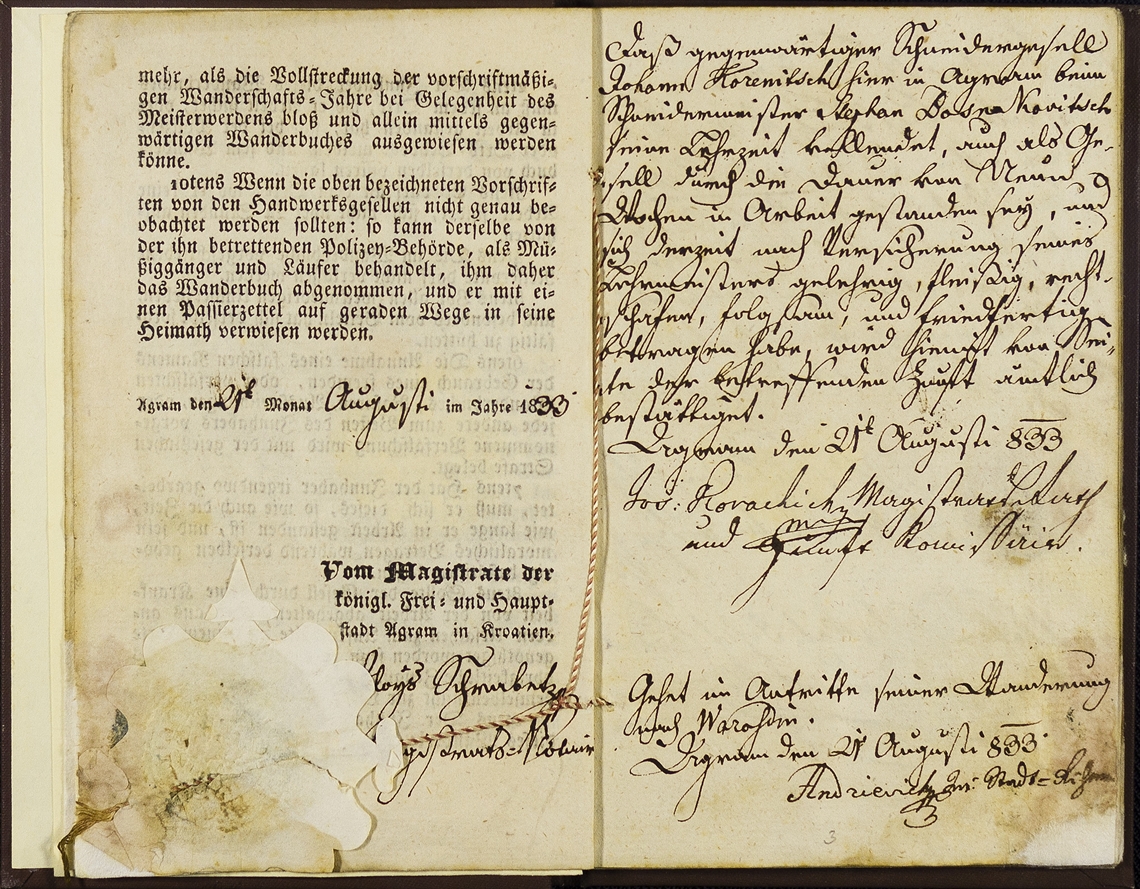 mehr, als die Vollstreckung der vorschriftmäßi-
gen Wanderschafts-Jahre bei Gelegenheit des
Meisterwerdens bloß und allein mittels gegen-
wärtigen Wanderbuches ausgewiesen werden
könne.
10tens Wenn die oben bezeichneten Vorschrif-
ten von den Handwerksgesellen nicht genau be-
obachtet werden sollten: so kann derselbe von
der ihn betrettenden Polizey-Behörde, als Mü-
ßiggänger und Läufer behandelt, ihm daher
das Wanderbuch abgenommen, und er mit ei-
nen Passierzettel auf geraden Wege in seine
Heimath verwiesen werden.
Agram den 21t Monat Augusti im Jahre 1833
Vom Magistrate der
königl. Frei- und Haupt-
stadt Agram in Kroatien.
Aloys Schrabetz
Magistrats-Notair
Daß gegenwärtiger Schneidergesell
Johann Korenitsch hier in Agram beim
Schneidermeister Stephan
seine Lehrzeit vollendet, auch als Ge-
sell durch die Dauer von Neun
Wochen in Arbeit gestanden sey, und
sich derzeit nach Versicherung seines
Lehrmeisters gelehrig, fleißig, recht-
schafen, folgsam, und friedfertig
betragen habe, wird hiemit von Sei-
te der betreffenden Zunft ämtlich
bestättiget.
Agram den 21t Augusti 833
Jos: Magistrats Rath
und Zunft Komissäir.
Gehet im Antritte seiner Wanderung
nach Warasdin.
Agram den 21 Augusti 833
Andrievich Stadt-
3